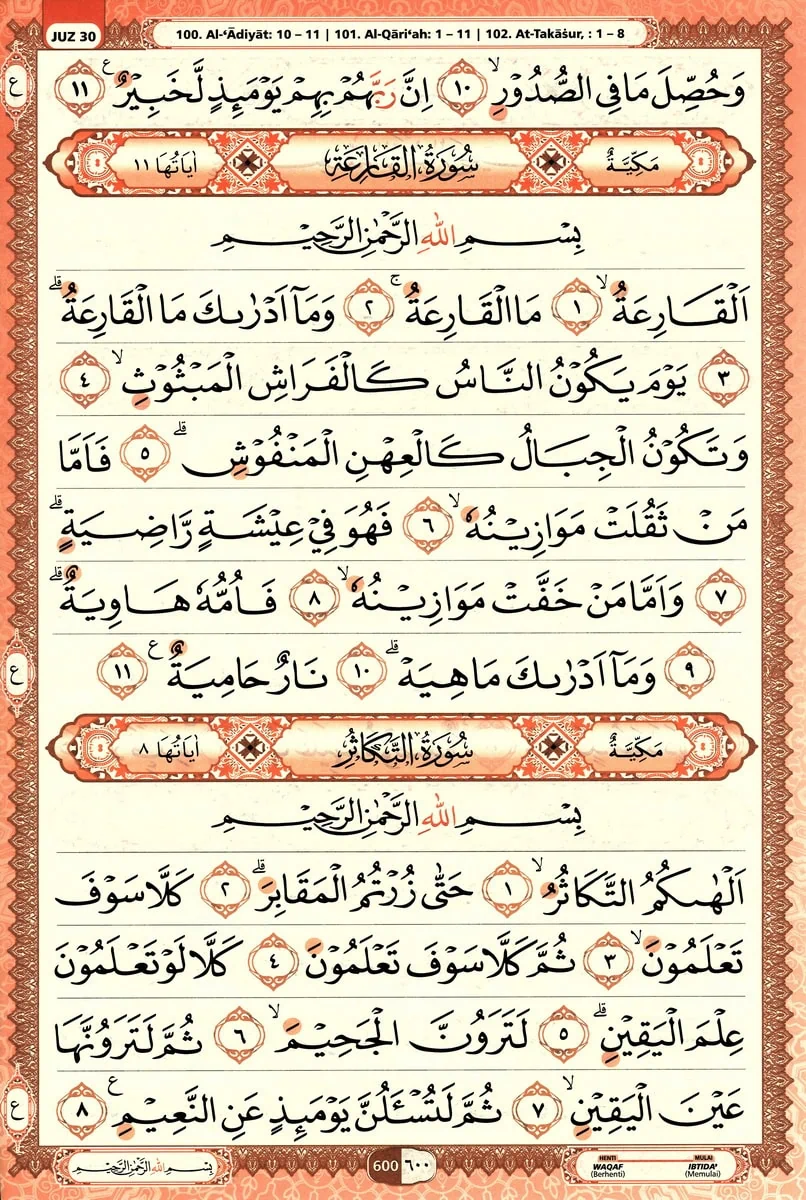 JUZ 30
100. Al-‘Ādiyāt: 10 – 11 | 101. Al-Qāri‘ah: 1 – 11 | 102. At-Takāṡur, : 1 – 8
وَحُصِّلَ مَا فِى الصُّدُوْرِۙ ١٠ اِنَّ رَبَّهُمْ بِهِمْ يَوْمَىِٕذٍ لَّخَبِيْرٌ ࣖ ١١
ع
مَكِّيَّةٌ سُوْرَةُ الْقَارِعَةِ اٰيَاتُهَا ١١
بِسْمِ اللّٰهِ الرَّحْمٰنِ الرَّحِيْمِ
اَلْقَارِعَةُۙ ١ مَا الْقَارِعَةُۚ ٢ وَمَآ اَدْرٰىكَ مَا الْقَارِعَةُۗ
٣ يَوْمَ يَكُوْنُ النَّاسُ كَالْفَرَاشِ الْمَبْثُوْثِۙ ٤
وَتَكُوْنُ الْجِبَالُ كَالْعِهْنِ الْمَنْفُوْشِۗ ٥ فَاَمَّا
مَنْ ثَقُلَتْ مَوَازِيْنُهٗۙ ٦ فَهُوَ فِيْ عِيْشَةٍ رَّاضِيَةٍۗ
٧ وَاَمَّا مَنْ خَفَّتْ مَوَازِيْنُهٗۙ ٨ فَاُمُّهٗ هَاوِيَةٌۗ
٩ وَمَآ اَدْرٰىكَ مَا هِيَهْۗ ١٠ نَارٌ حَامِيَةٌ ࣖ ١١
ع
مَكِّيَّةٌ سُوْرَةُ التَّكَاثُرِ اٰيَاتُهَا ٨
بِسْمِ اللّٰهِ الرَّحْمٰنِ الرَّحِيْمِ
اَلْهٰىكُمُ التَّكَاثُرُۙ ١ حَتّٰى زُرْتُمُ الْمَقَابِرَۗ ٢ كَلَّا سَوْفَ
تَعْلَمُوْنَۙ ٣ ثُمَّ كَلَّا سَوْفَ تَعْلَمُوْنَ ٤ كَلَّا لَوْ تَعْلَمُوْنَ
عِلْمَ الْيَقِيْنِۗ ٥ لَتَرَوُنَّ الْجَحِيْمَۙ ٦ ثُمَّ لَتَرَوُنَّهَا
عَيْنَ الْيَقِيْنِۙ ٧ ثُمَّ لَتُسْـَٔلُنَّ يَوْمَىِٕذٍ عَنِ النَّعِيْمِ ࣖ ٨
ع
بِسْمِ اللّٰهِ الرَّحْمٰنِ الرَّحِيْمِ
600 ٦٠٠
HENTI WAQAF (Berhenti)
MULAI IBTIDA' (Memulai)